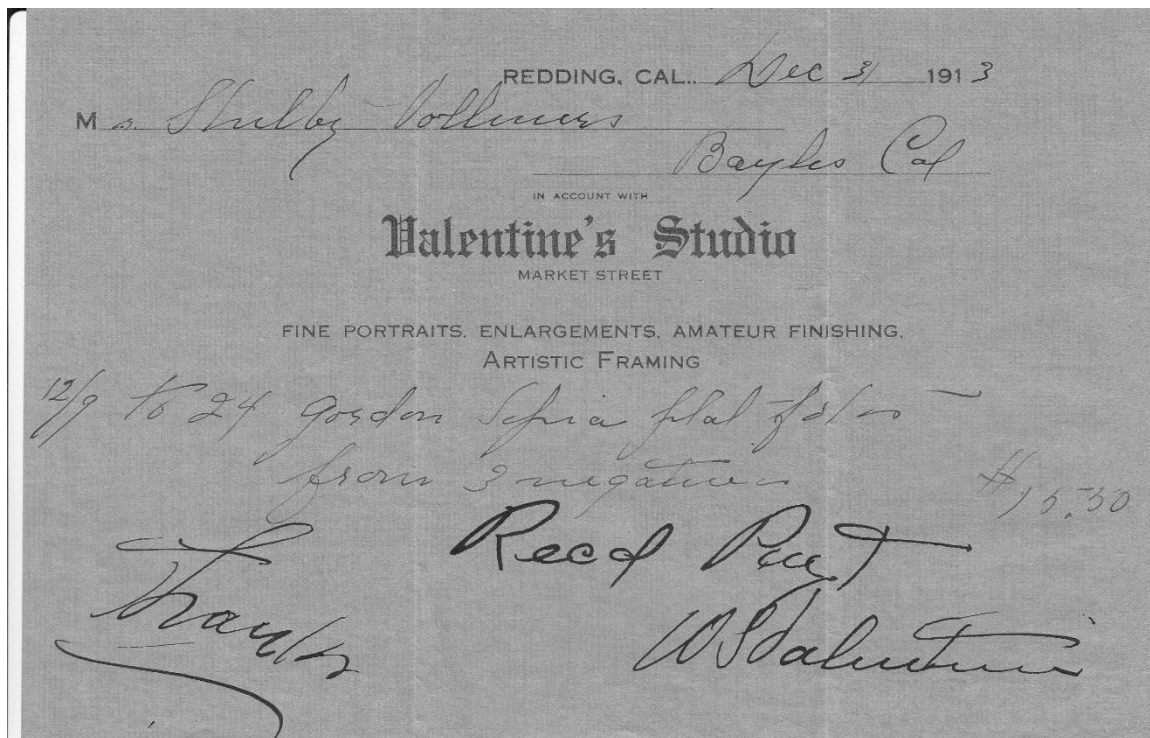 REDDING, CAL., Dec 31 1913
M s. Shelby Vollmers
Bayles Cal
IN ACCOUNT WITH
Valentine's Studio
MARKET STREET
FINE PORTRAITS, ENLARGEMENTS, AMATEUR FINISHING,
ARTISTIC FRAMING
12/9 To 24 Gordon Sepia plat
from 3 negatives $15.50
Recd Pmt
Thanks
WS Valentine